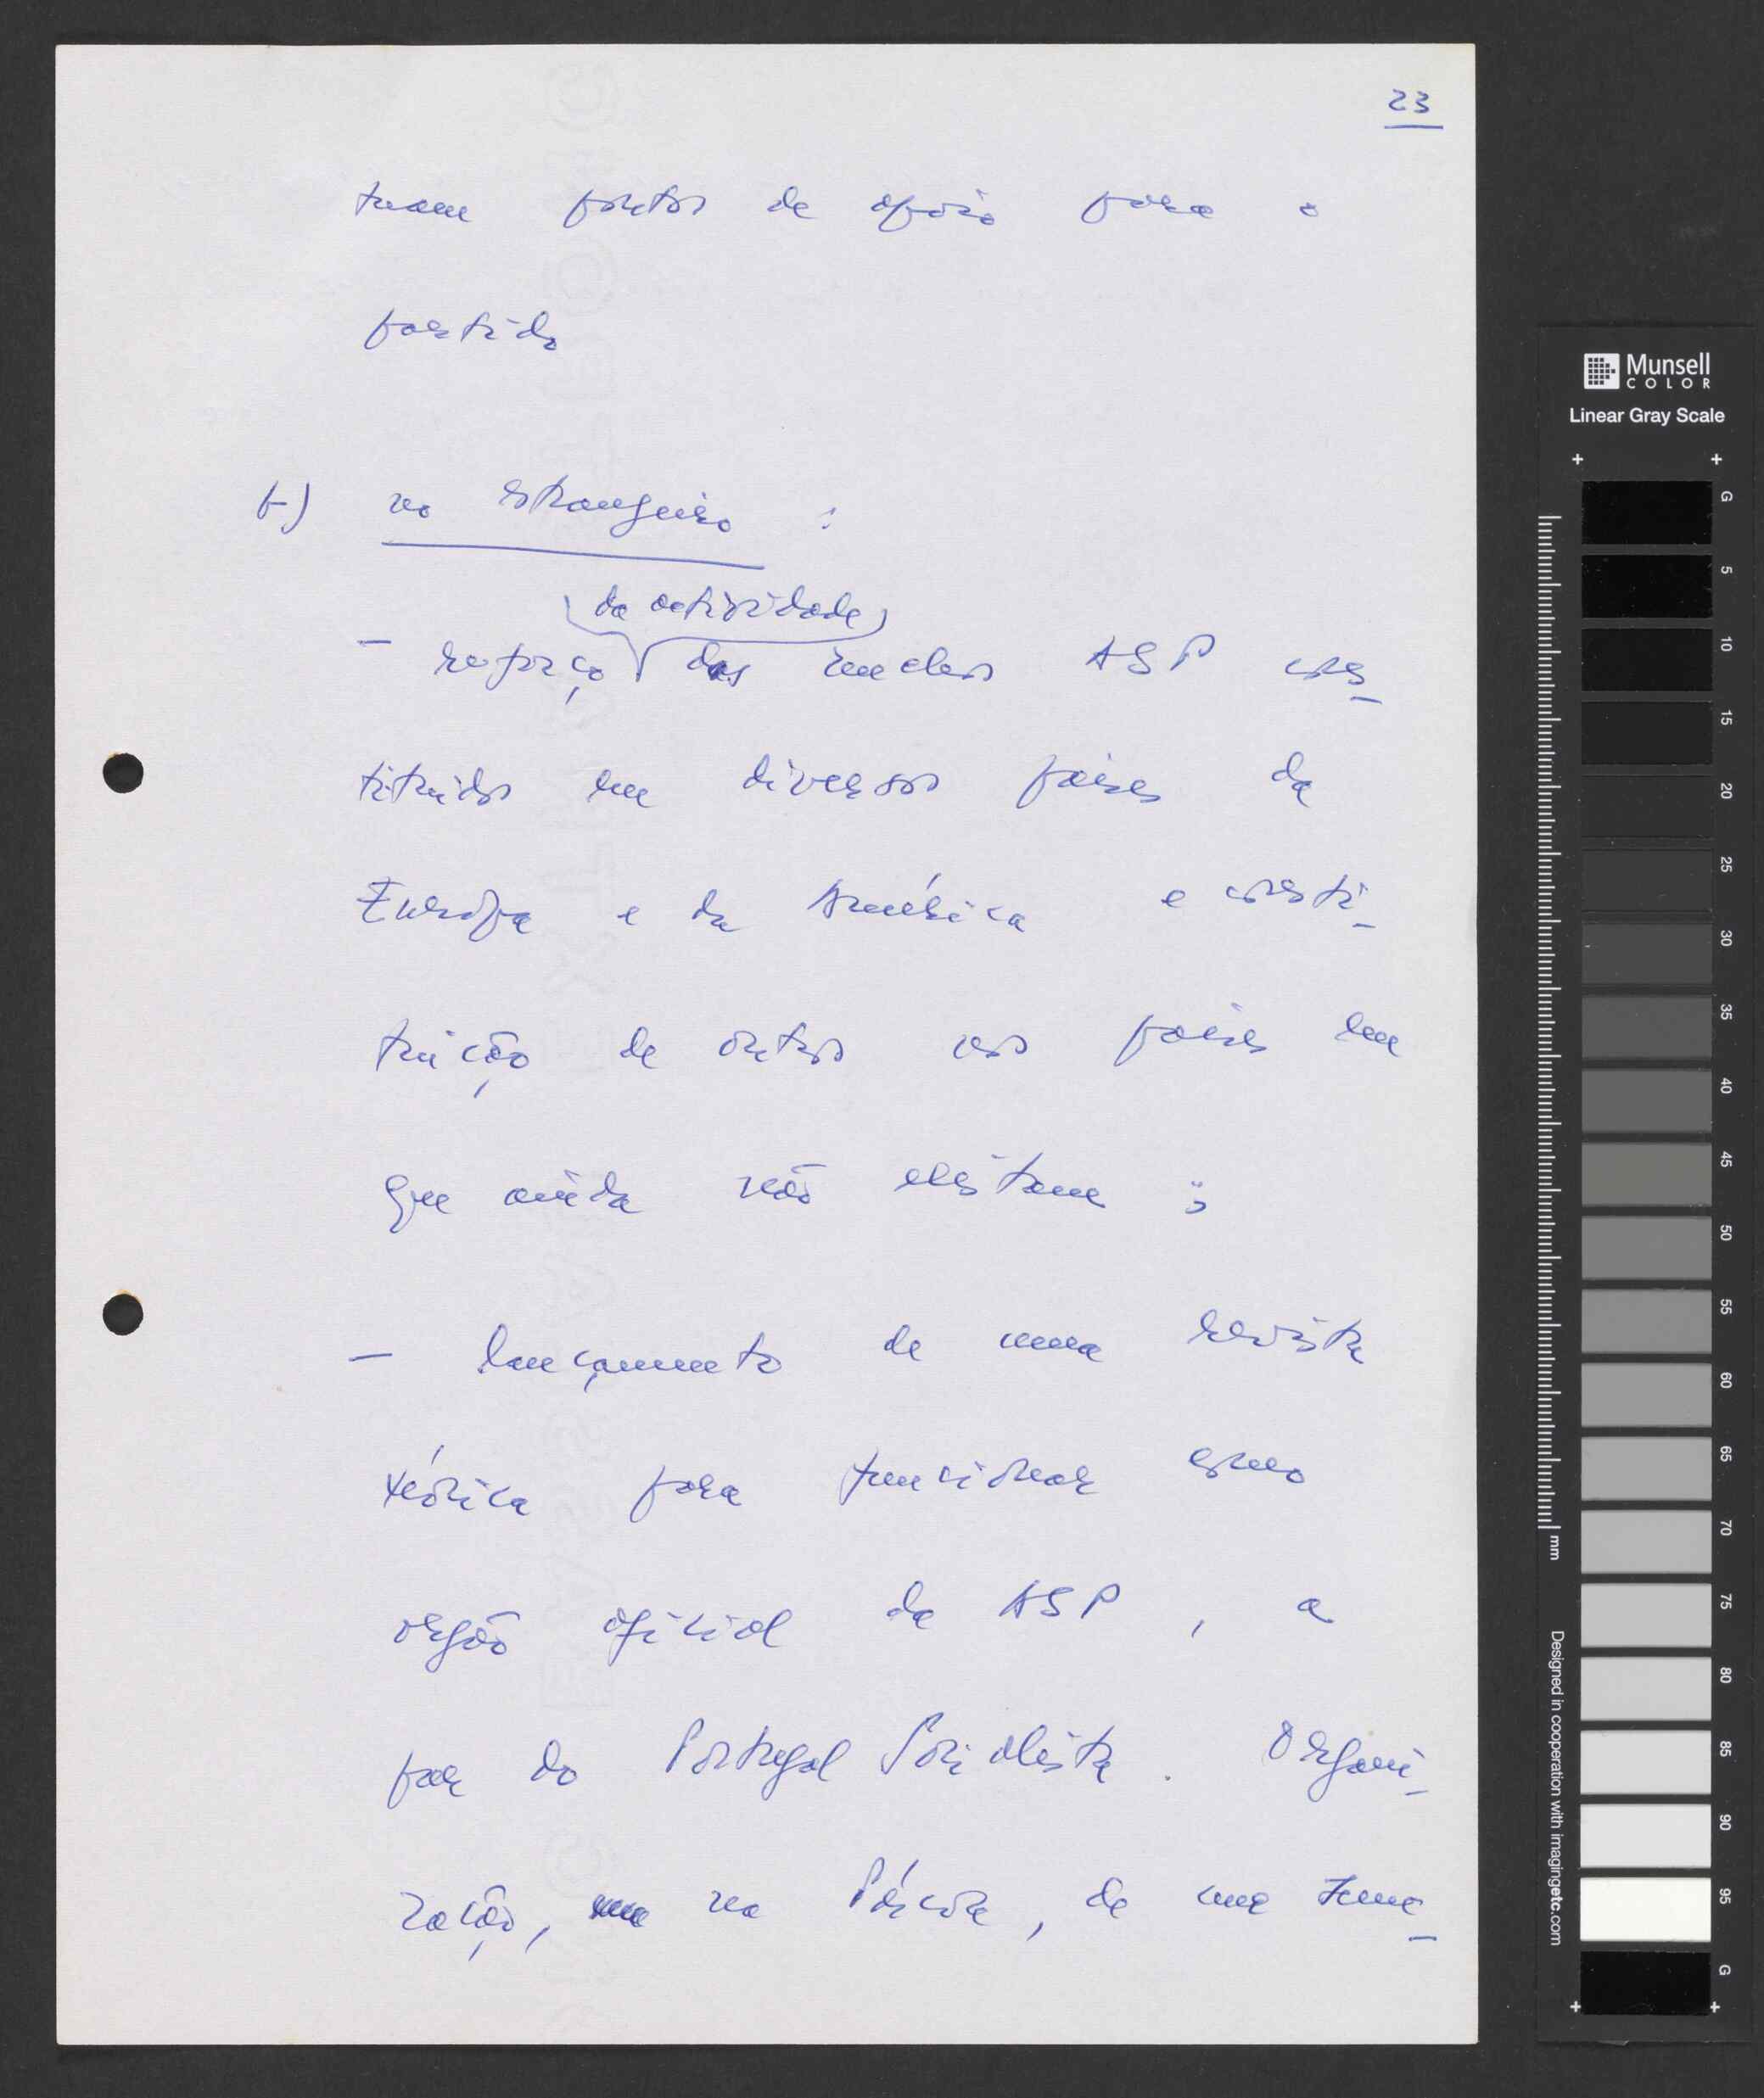 23
tuam pontos de apoio para o
partido
b) no estrangeiro :
da actividade
- reforço dos nucleos ASP cons-
tituidos em diversos paises da
Europa e da América e consti-
tuição de outros nos paises em
que ainda não existam ;
- lançamento de uma revista
teórica para funcionar como
orgão oficial da ASP , a
par do Portugal Socialista . Organi-
zação, na Páscoa , de uma
Munsell
COLOR
Linear Gray Scale
G
5
10
15
20
25
30
35
40
45
50
55
60
65
70
75
80
85
90
95
G
mm
Designed in cooperation with imagingetc.com